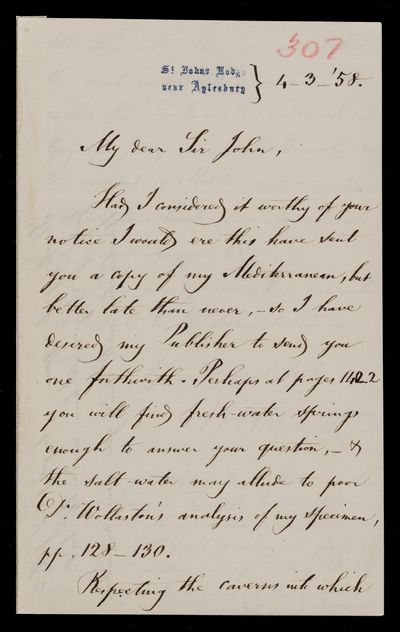 307
St Johns Lodge
near Aylesbury } 4-3-'58.
My dear Sir John,
Had I considered it worthy of your
notice I would ere this have sent
you a copy of my Mediterranean, but
better late than never, - so I have
desired my Publisher to send you
one forthwith. Perhaps at pages
you will find fresh-water springs
enough to answer your question, - &
the salt-water may allude to poor
Dr. Wollaston's analysis of my specimen,
pp. 128-130.
Respecting the caverns into which